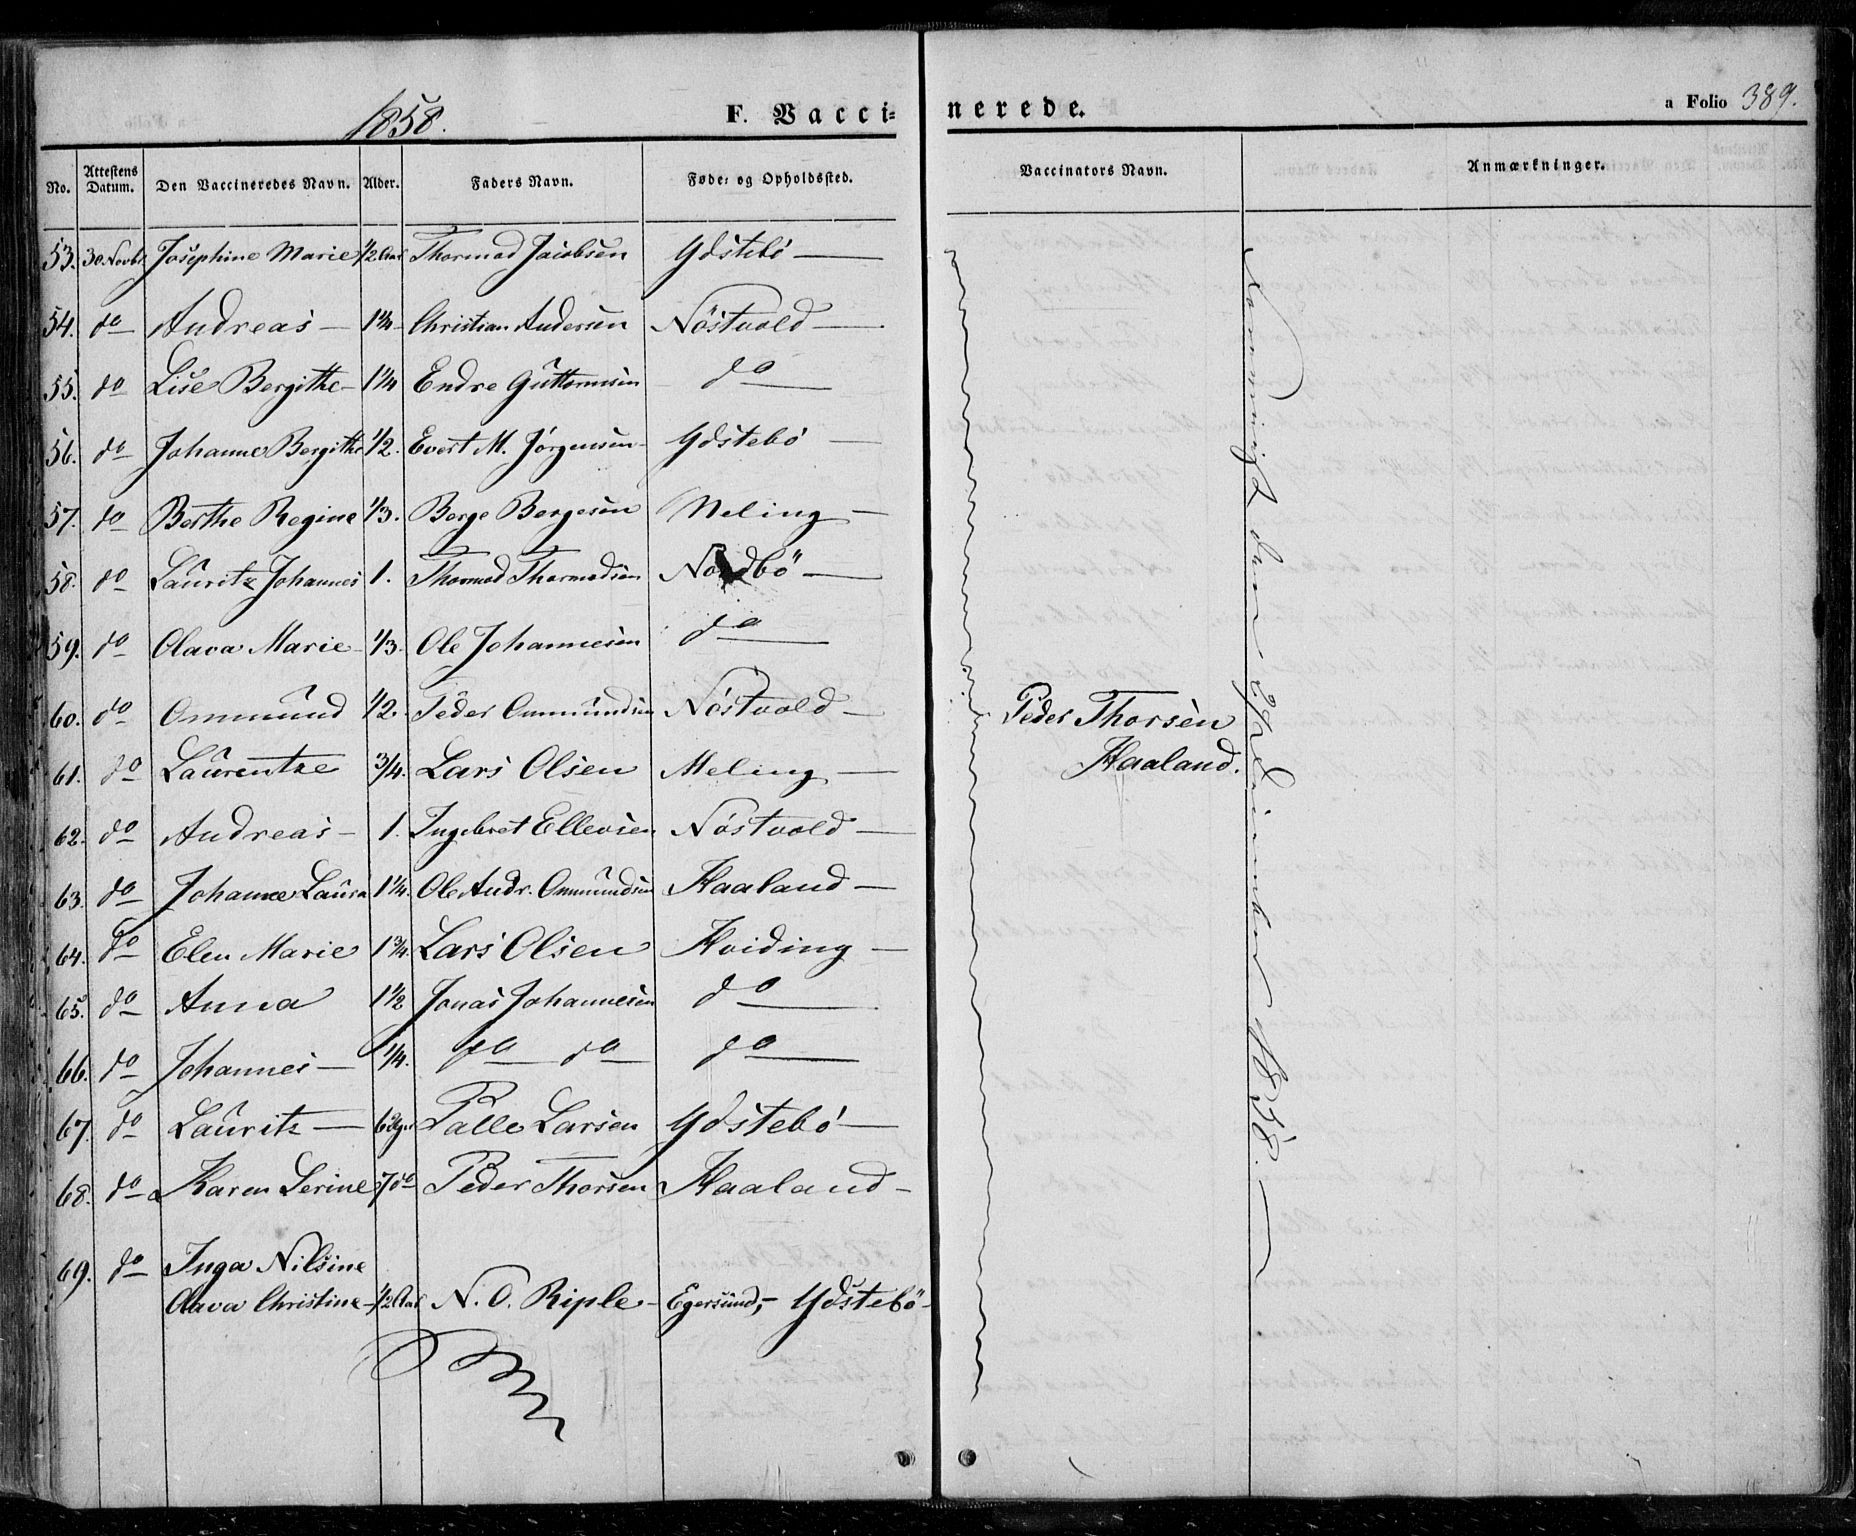 1858.
F. Vacci- nerede.
a Folio 389.
No. Attestens Datum. Den Vaccineredes Navn. Alder. Faders Navn. Føde- og Opholdssted. Vaccinators Navn. Anmærkninger.
53. 30. Novbr Josephine Marie 1/2 Aar Thormod Jacobsen Ydstebö
54. do Andreas 1 3/4 Christian Andersen Nöstvold
55. do Lise Bergithe 1 1/4 Endre Guttormsen do
56. do Johanne Bergithe 1/2. Evert M. Jörgensen Ydstebö
57. do Berthe Regine 1/3. Berge Bergesen Meling
58. do Lauritz Johannes 1. Thormod Thormodsen Nordbö
59. do Olava Marie 1/3. Ole Johannesen do
60. do Ommund 1/2. Peder Ommundsen Nöstvold
61. do Laurentze 3/4. Lars Olsen Meling
62. do Andreas 1. Ingebret Ellevsen Nöstvold
63. do Johanne Laura 1 1/4. Ole Andr. Ommundsen Haaland
64. do Elen Marie 1 3/4. Lars Olsen Hviding
65. do Anna 1 1/2 Jonas Johannesen do
66. do Johannes 1/4. do do do
67. do Lauritz 6 Uger Palle Larsen Ydstebö
68. do Karen Serine 7 do Peder Thorsen Haaland
69. do Inga Nilsine
Olava Christine 1/2 Aar N. O. Riple Egersund, Ydstebö
Peder Thorsen
Haaland.
den December 1858.